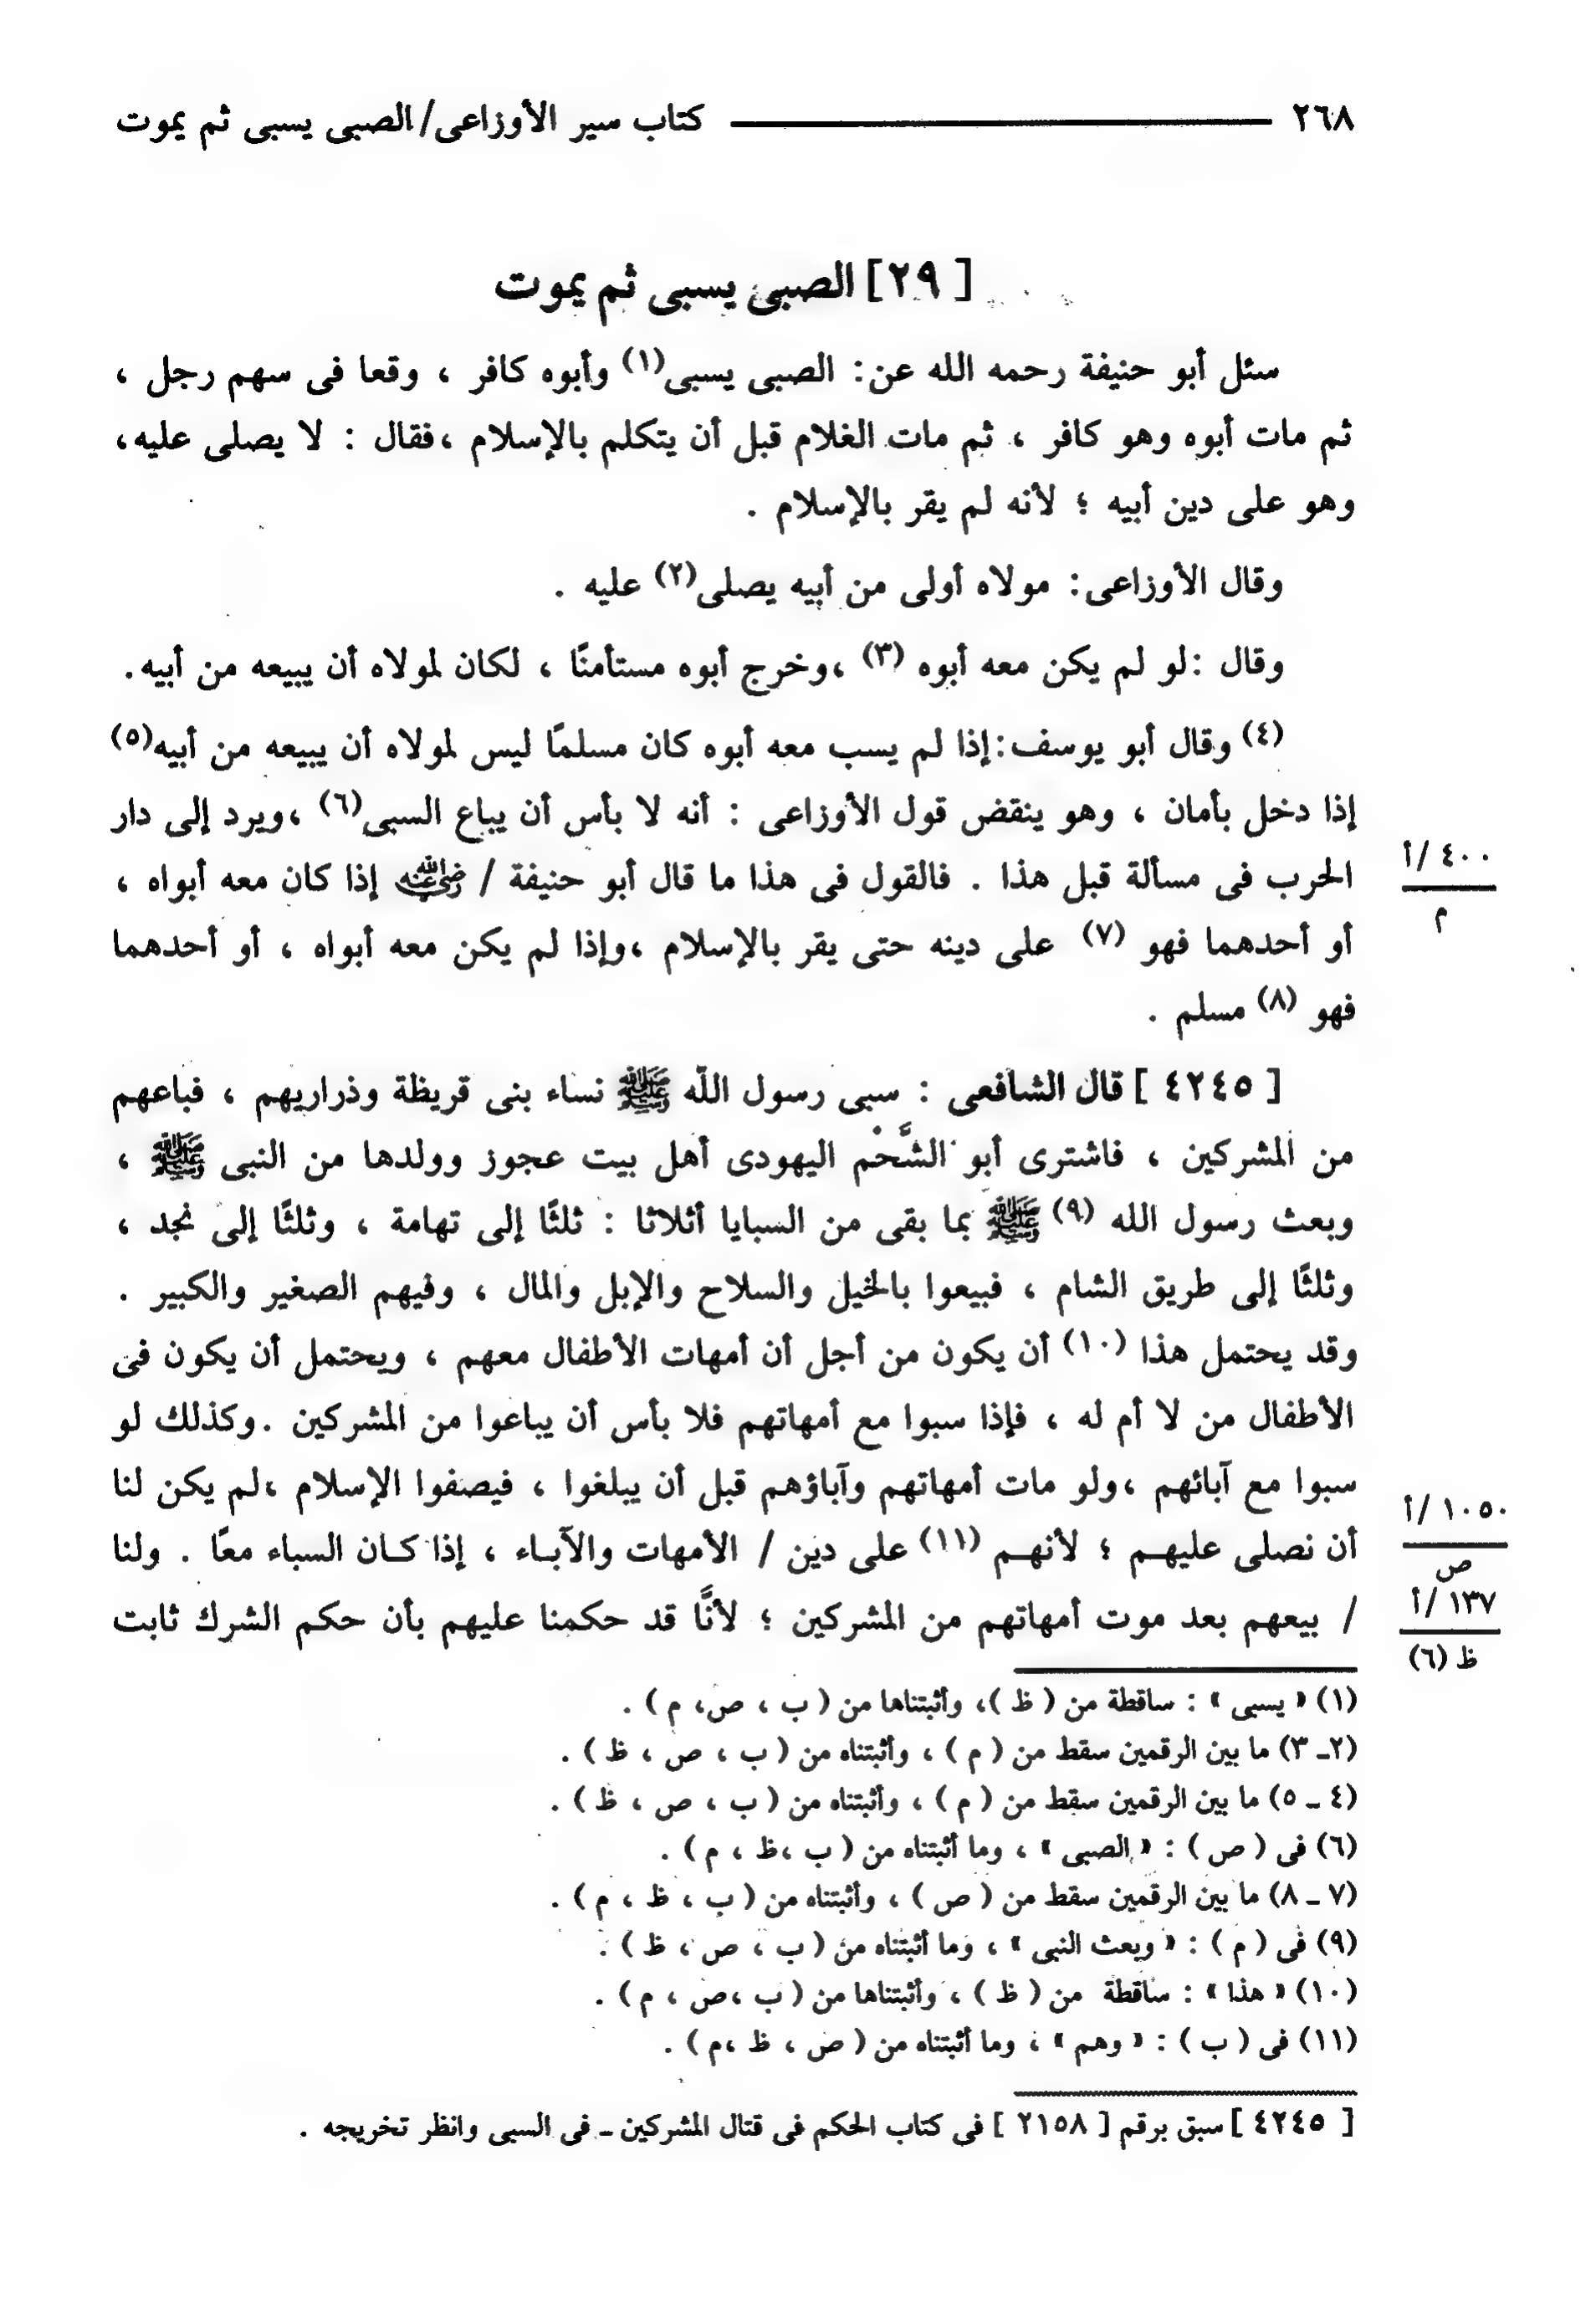 ٢٦٨ كتاب سير الأوزاعى/ الصبى يسبى ثم يموت
[ ٢٩ ] الصبى يسبى ثم يموت
سئل أبو حنيفة رحمه الله عن: الصبى يسبى(١) وأبوه كافر ، وقعا فى سهم رجل ،
ثم مات أبوه وهو كافر ، ثم مات الغلام قبل أن يتكلم بالإسلام ،فقال : لا يصلى عليه،
وهو على دين أبيه ؛ لأنه لم يقر بالإسلام .
وقال الأوزاعى: مولاه أولى من أبيه يصلى(٢) عليه .
وقال :لو لم يكن معه أبوه (٣) ،وخرج أبوه مستأمنًا ، لكان لمولاه أن يبيعه من أبيه.
(٤) وقال أبو يوسف:إذا لم يسب معه أبوه كان مسلمًا ليس لمولاه أن يبيعه من أبيه(٥)
إذا دخل بأمان ، وهو ينقض قول الأوزاعى : أنه لا بأس أن يباع السبى(٦) ،ويرد إلى دار
الحرب فى مسألة قبل هذا . فالقول فى هذا ما قال أبو حنيفة / رضي الله عنه إذا كان معه أبواه ،
٤٠٠ /أ
م
أو أحدهما فهو (٧) على دينه حتى يقر بالإسلام ،وإذا لم يكن معه أبواه ، أو أحدهما
فهو (٨) مسلم .
[ ٤٢٤٥ ] قال الشافعى : سبى رسول اللّه ﷺ نساء بنى قريظة وذراريهم ، فباعهم
من المشركين ، فاشترى أبو الشَّحْم اليهودى أهل بيت عجوز وولدها من النبى ﷺ ،
وبعث رسول الله (٩) ﷺ بما بقى من السبايا أثلاثا : ثلثًا إلى تهامة ، وثلثًا إلى نجد ،
وثلثًا إلى طريق الشام ، فبيعوا بالخيل والسلاح والإبل والمال ، وفيهم الصغير والكبير .
وقد يحتمل هذا (١٠) أن يكون من أجل أن أمهات الأطفال معهم ، ويحتمل أن يكون فى
الأطفال من لا أم له ، فإذا سبوا مع أمهاتهم فلا بأس أن يباعوا من المشركين .وكذلك لو
سبوا مع آبائهم ،ولو مات أمهاتهم وآباؤهم قبل أن يبلغوا ، فيصفوا الإسلام ،لم يكن لنا
١٠٥٠ /أ
ص
أن نصلى عليهـم ؛ لأنهـم (١١) على دين / الأمهات والآبـاء ، إذا كـان السباء معًا . ولنا
/ بيعهم بعد موت أمهاتهم من المشركين ؛ لأنَّا قد حكمنا عليهم بأن حكم الشرك ثابت
١٣٧ /أ
ظ (٦)
(١) « يسبى » : ساقطة من ( ظ )، وأثبتناها من ( ب ، ص، م ) .
(٢ـ ٣) ما بين الرقمين سقط من ( م ) ، وأثبتناه من ( ب ، ص ، ظ ) .
(٤ ـ ٥) ما بين الرقمين سقط من ( م ) ، وأثبتناه من ( ب ، ص ، ظ ) .
(٦) فى ( ص ) : « الصبى » ، وما أثبتناه من ( ب ،ظ ، م ) .
(٧ ـ ٨) ما بين الرقمين سقط من ( ص ) ، وأثبتناه من ( ب ، ظ ، م ) .
(٩) فى ( م ) : « وبعث النبى » ، وما أثبتناه من ( ب ، ص ، ظ ) .
(١٠) « هذا » : ساقطة من ( ظ ) ، وأثبتناها من ( ب ،ص ، م ) .
(١١) فى ( ب ) : « وهم » ، وما أثبتناه من ( ص ، ظ ،م ) .
[ ٤٢٤٥ ] سبق برقم [ ٢١٥٨ ] فى كتاب الحكم فى قتال المشركين ـ فى السبى وانظر تخريجه .